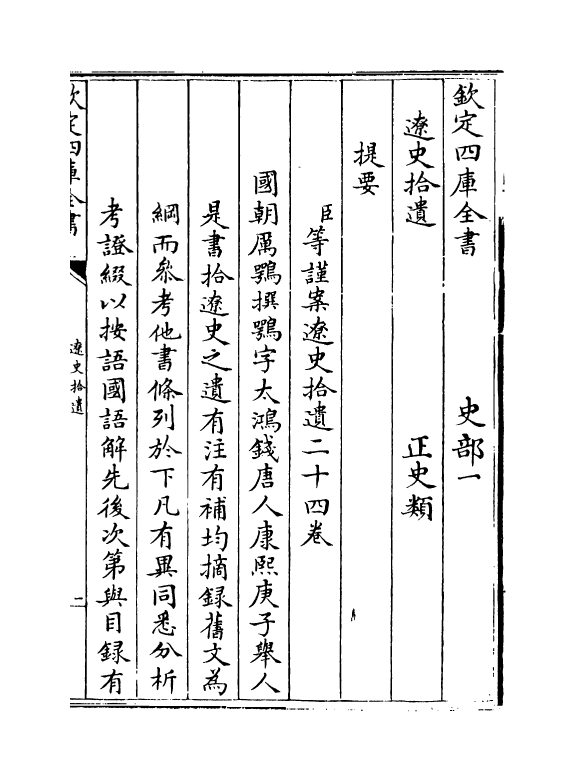 欽定四庫全書　史部一
遼史拾遺　正史類
提要
臣等謹案遼史拾遺二十四卷
國朝厲鶚撰鶚字太鴻錢唐人康熙庚子舉人
是書拾遼史之遺有注有補均摘錄舊文為
綱而叅考他書條列於下凡有異同悉分析
考證綴以按語國語解先後次第與目録有
欽定四庫全書
遼史拾遺
二